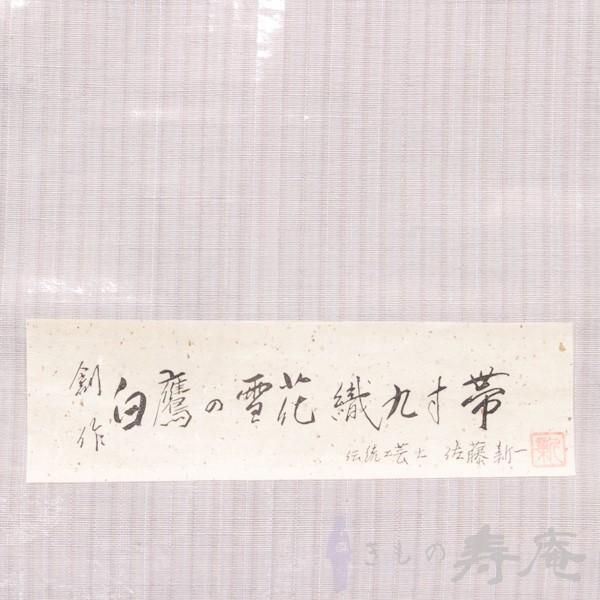 創作
白鷹の雪花織九寸帯
伝統工芸士 佐藤新一
きもの寿庵